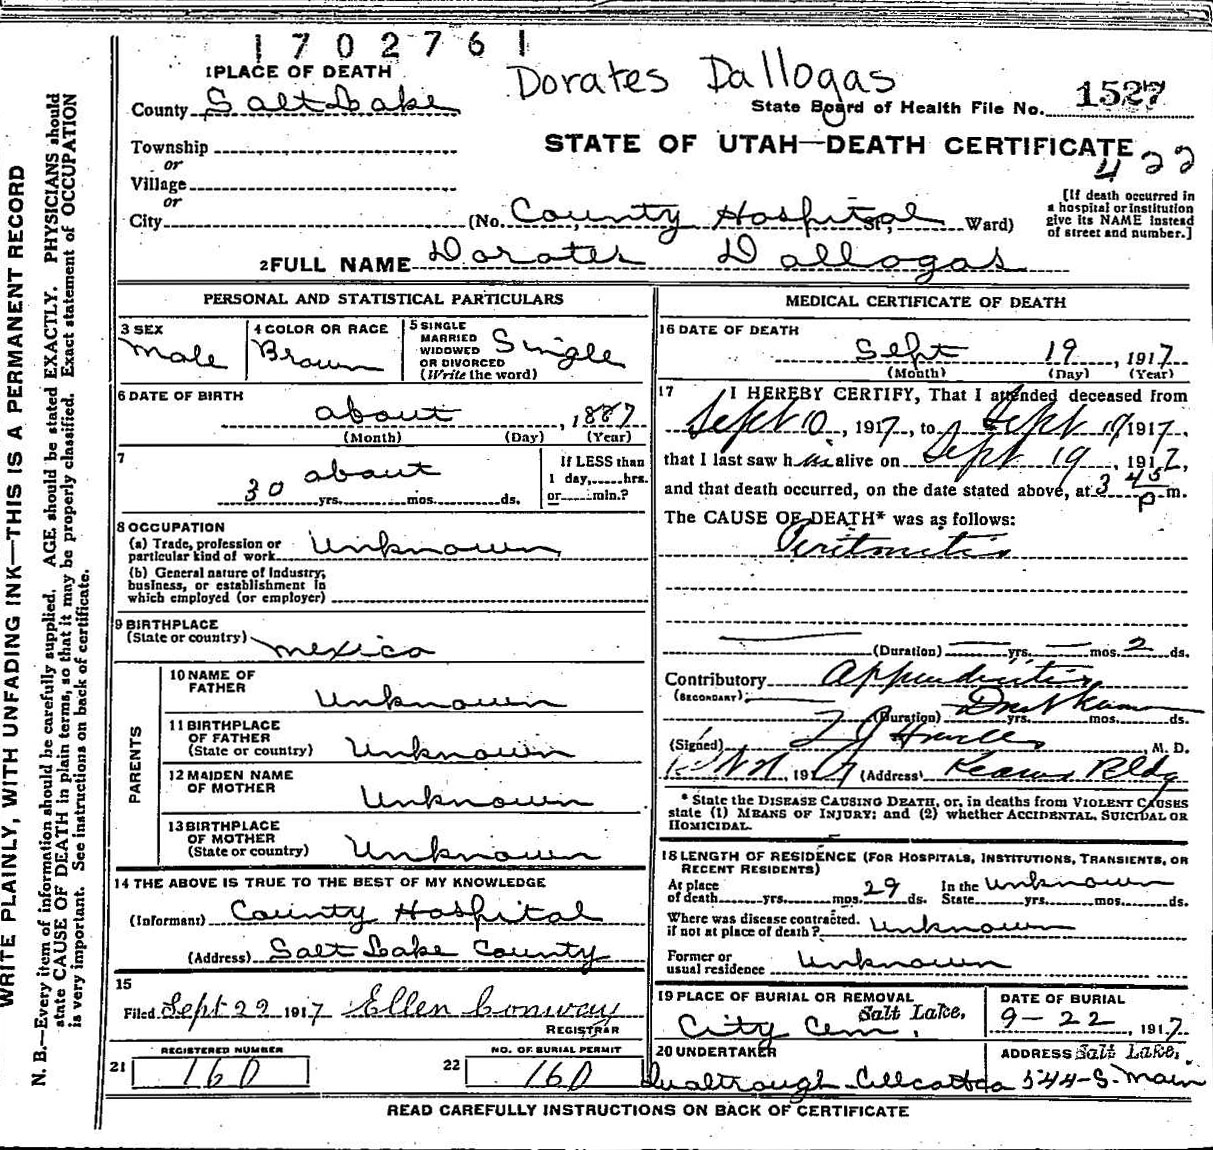 1702761
Dorates Dallogas
1 PLACE OF DEATH
County Salt Lake
State Board of Health File No. 1527
STATE OF UTAH—DEATH CERTIFICATE
422
Township
or
Village
or
City (No. County Hospital St; Ward)
[If death occurred in
a hospital or institution
give its NAME instead
of street and number.]
2 FULL NAME Dorates Dallogas
PERSONAL AND STATISTICAL PARTICULARS
3 SEX
Male
4 COLOR OR RACE
Brown
5 SINGLE
MARRIED
WIDOWED
OR DIVORCED
(Write the word)
Single
6 DATE OF BIRTH
about , 1887
(Month) (Day) (Year)
7
about
30 yrs. mos. ds.
If LESS than
1 day, hrs.
or min.?
8 OCCUPATION
(a) Trade, profession or
particular kind of work Unknown
(b) General nature of Industry,
business, or establishment in
which employed (or employer)
9 BIRTHPLACE
(State or country) Mexico
PARENTS
10 NAME OF
FATHER Unknown
11 BIRTHPLACE
OF FATHER
(State or country) Unknown
12 MAIDEN NAME
OF MOTHER Unknown
13 BIRTHPLACE
OF MOTHER
(State or country) Unknown
14 THE ABOVE IS TRUE TO THE BEST OF MY KNOWLEDGE
(Informant) County Hospital
(Address) Salt Lake County
15
Filed Sept 22 1917 Ellen Conway
REGISTRAR
21 REGISTERED NUMBER
160
22 NO. OF BURIAL PERMIT
160
MEDICAL CERTIFICATE OF DEATH
16 DATE OF DEATH
Sept 19, 1917
(Month) (Day) (Year)
17 I HEREBY CERTIFY, That I attended deceased from
Sept 10, 1917, to Sept 19 1917,
that I last saw him alive on Sept 19, 1917,
and that death occurred, on the date stated above, at 3 45 P m.
The CAUSE OF DEATH* was as follows:
Peritonitis
(Duration) yrs. mos. 2 ds.
Contributory Appendicitis
(SECONDARY)
(Duration) Dont Know yrs. mos. ds.
(Signed) M. D.
1917 (Address) Kearns Bldg
* State the DISEASE CAUSING DEATH, or, in deaths from VIOLENT CAUSES
state (1) MEANS OF INJURY; and (2) whether ACCIDENTAL, SUICIDAL OR
HOMICIDAL.
18 LENGTH OF RESIDENCE (FOR HOSPITALS, INSTITUTIONS, TRANSIENTS, OR
RECENT RESIDENTS)
At place
of death yrs. mos. 29 ds.
In the
State Unknown yrs. mos. ds.
Where was disease contracted.
if not at place of death? Unknown
Former or
usual residence Unknown
19 PLACE OF BURIAL OR REMOVAL
Salt Lake,
City Cem.
DATE OF BURIAL
9-22, 1917.
20 UNDERTAKER
ADDRESS Salt Lake,
544-S. Main
READ CAREFULLY INSTRUCTIONS ON BACK OF CERTIFICATE
WRITE PLAINLY, WITH UNFADING INK—THIS IS A PERMANENT RECORD
N. B.—Every item of information should be carefully supplied. AGE should be stated EXACTLY. PHYSICIANS should
state CAUSE OF DEATH in plain terms, so that it may be properly classified. Exact statement of OCCUPATION
is very important. See instructions on back of certificate.